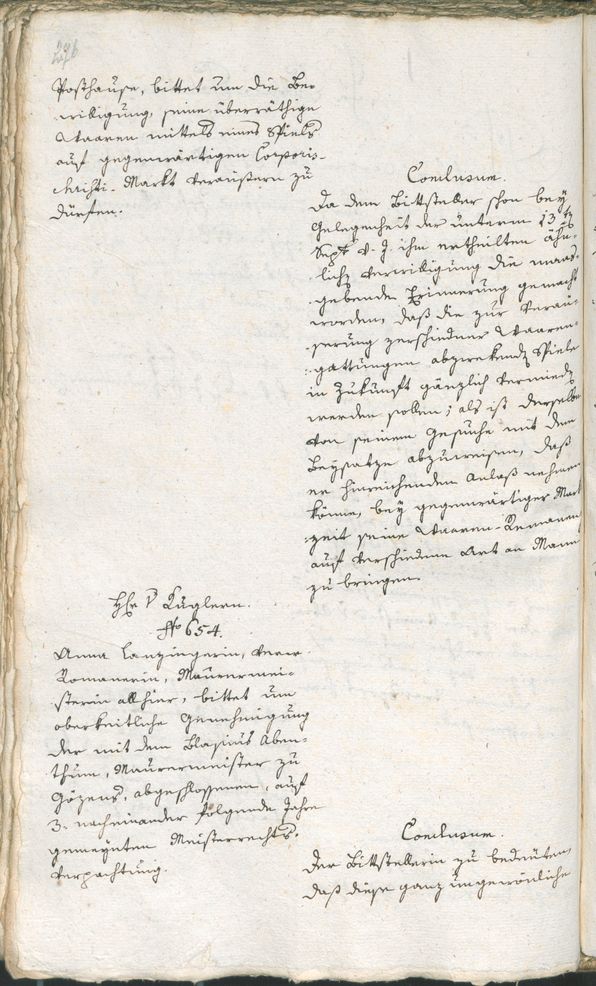 276
Posthause, bittet um die Be-
willigung, seine überräthige
Waaren mittels eines Spiels
auf gegenwärtigen Corporis-
christi-Markt veraußern zu
dürfen.
Conclusum.
Da dem Bittsteller schon bey
Gelegenheit der unterm 13.t
Sept. v. J. ihm ertheilten ähn-
lichen Verwilligung die maas-
gebende Erinnerung gemacht
worden, daß die zur Verau-
serung verschiedner Waaren-
gattungen abzwekende Spiele
in Zukunft gänzlich vermieden
werden sollen; als ist derselbe
von seinem Gesuche mit dem
Beysatze abzuweisen, daß
er hinreichenden Anlaß nehmen
könne, bey gegenwärtiger Markt
zeit seine Waaren-Remanenz
auf verschiedene Art an Mann
zu bringen.
H Kuglern.
No 654.
Anna Lanzingerin, verw.
Romanerin, Maurermei-
sterin allhier, bittet um
oberkeitliche Genehmigung
der mit dem Blasius Aben-
thum, Maurermeister zu
Gözens, abgeschlossenen, auf
3. nacheinander folgende Jahre
gemeynten Meisterrechts-
Verpachtung.
Conclusum.
Der Bittstellerin zu bedeuten,
daß diese ganz ungewönliche